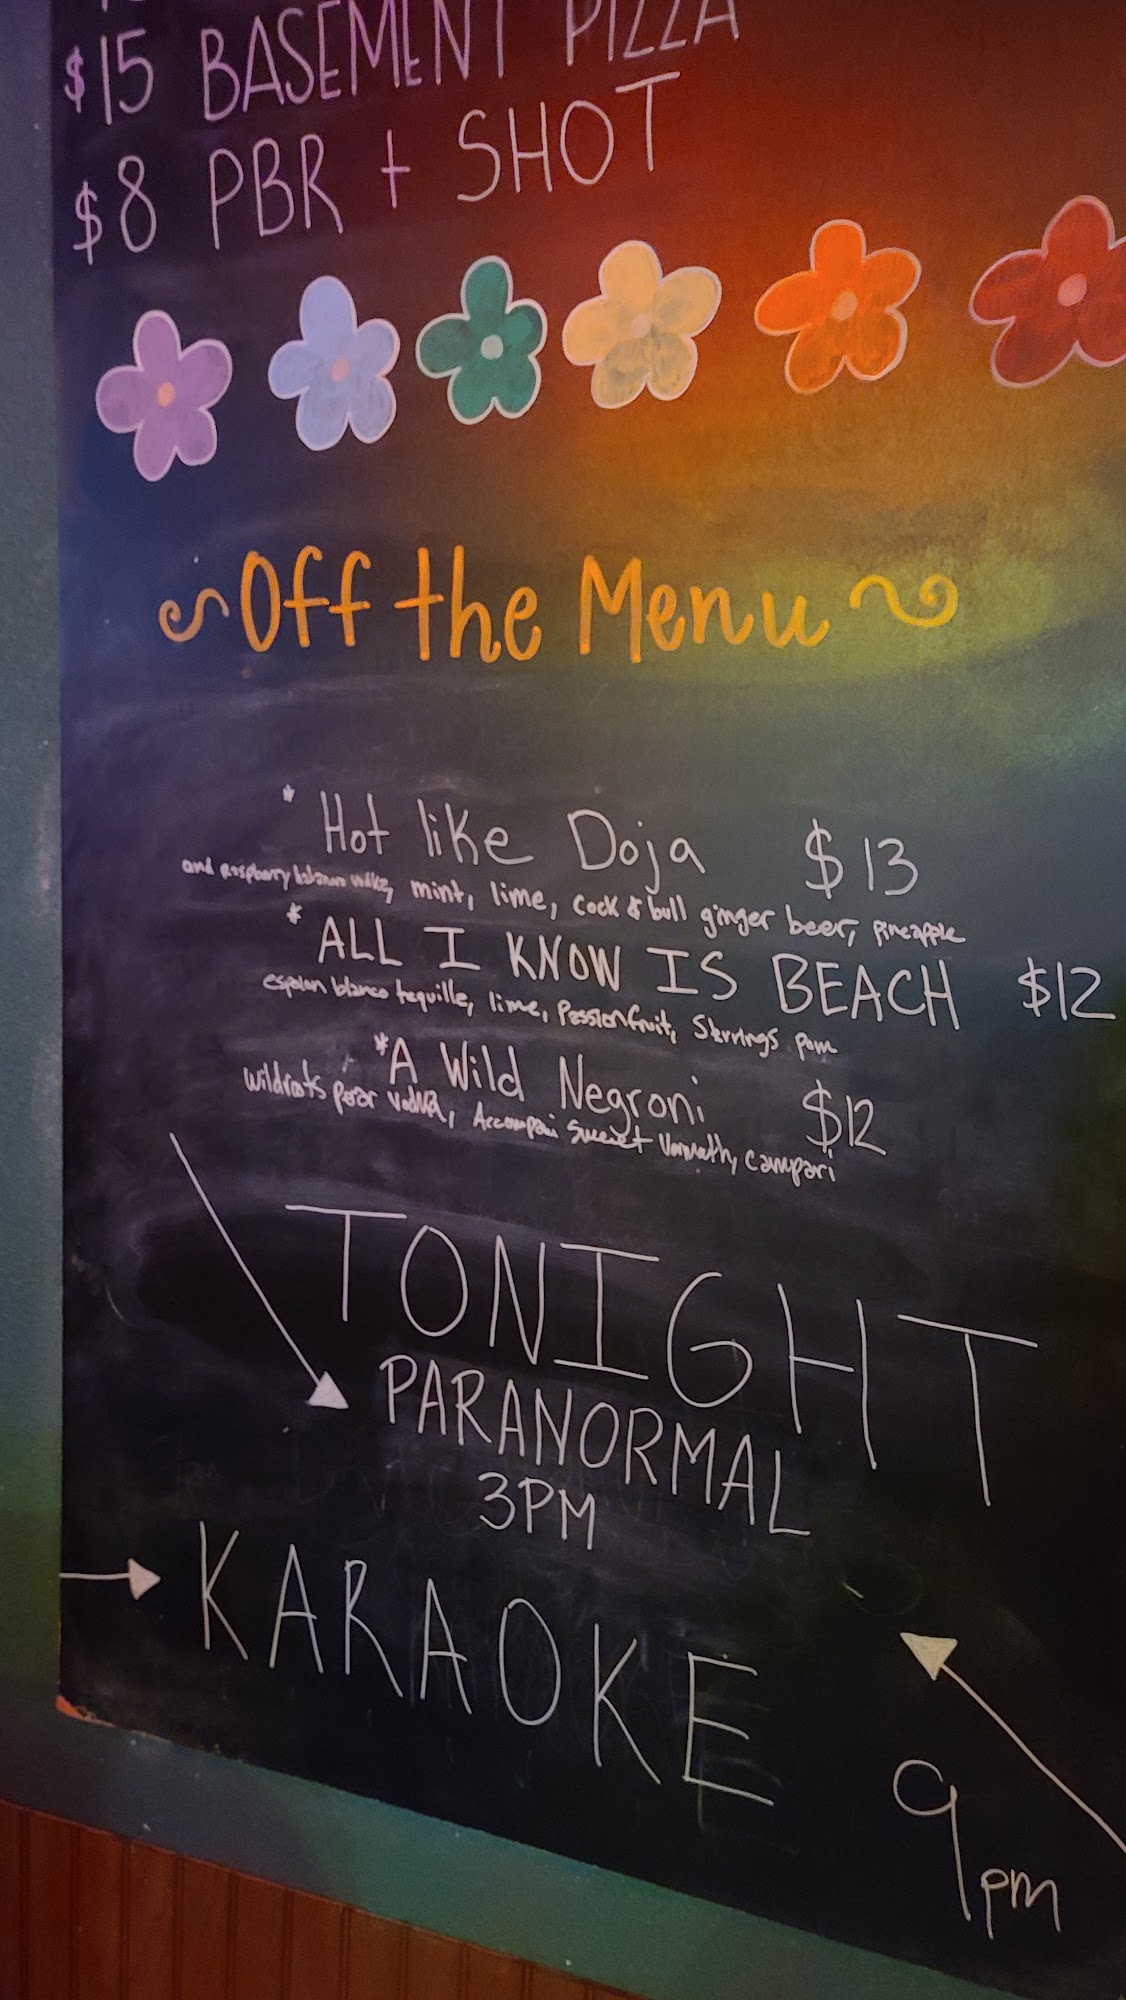 $15 BASEMENT PIZZA
$8 PBR + SHOT
Off the Menu
* Hot like Doja $13
and Raspberry mint, lime, cock & bull ginger beer, pineapple
* ALL I KNOW IS BEACH $12
espolon blanco tequille, lime, Passionfruit, Stirrings pom
* A Wild Negroni $12
Wildroots pear vodka, Accompani Sweet Vermouth, campari
TONIGHT
PARANORMAL
3PM
KARAOKE
9pm